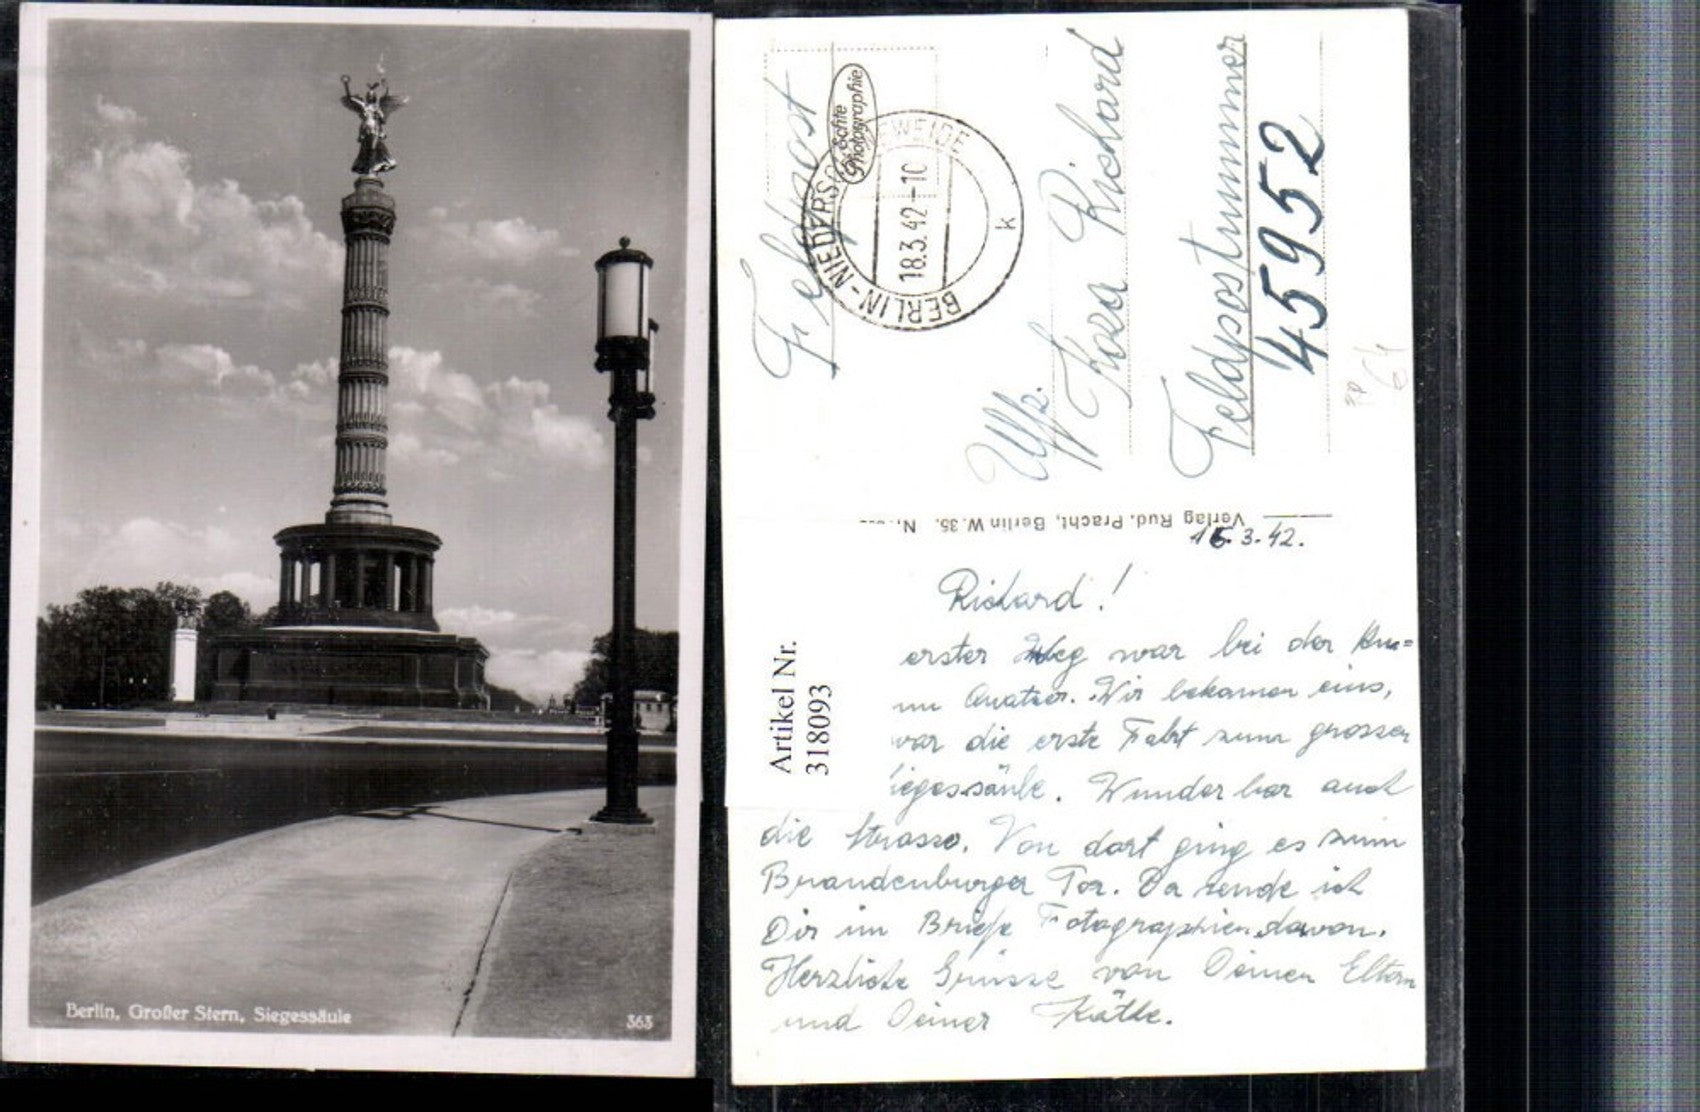 Berlin, Großer Stern, Siegessäule
363
Feldpost
Echte
Photographie
BERLIN-NIEDERSCHÖNEWEIDE
18.3.42-10
k
Richard
Feldpostnummer
45952
Verlag Rud. Pracht, Berlin W. 35.
16.3.42.
Richard!
erster Weg war bei der
Wir bekamen eins,
war die erste Fahrt zum grossen
Siegessäule. Wunderbar auch
die Strasse. Von dort ging es zum
Brandenburger Tor. Da sende ich
Dir im Briefe Fotographien davon.
Herzliche Grüsse von Deinen Eltern
und Deiner Käthe.
Artikel Nr.
318093